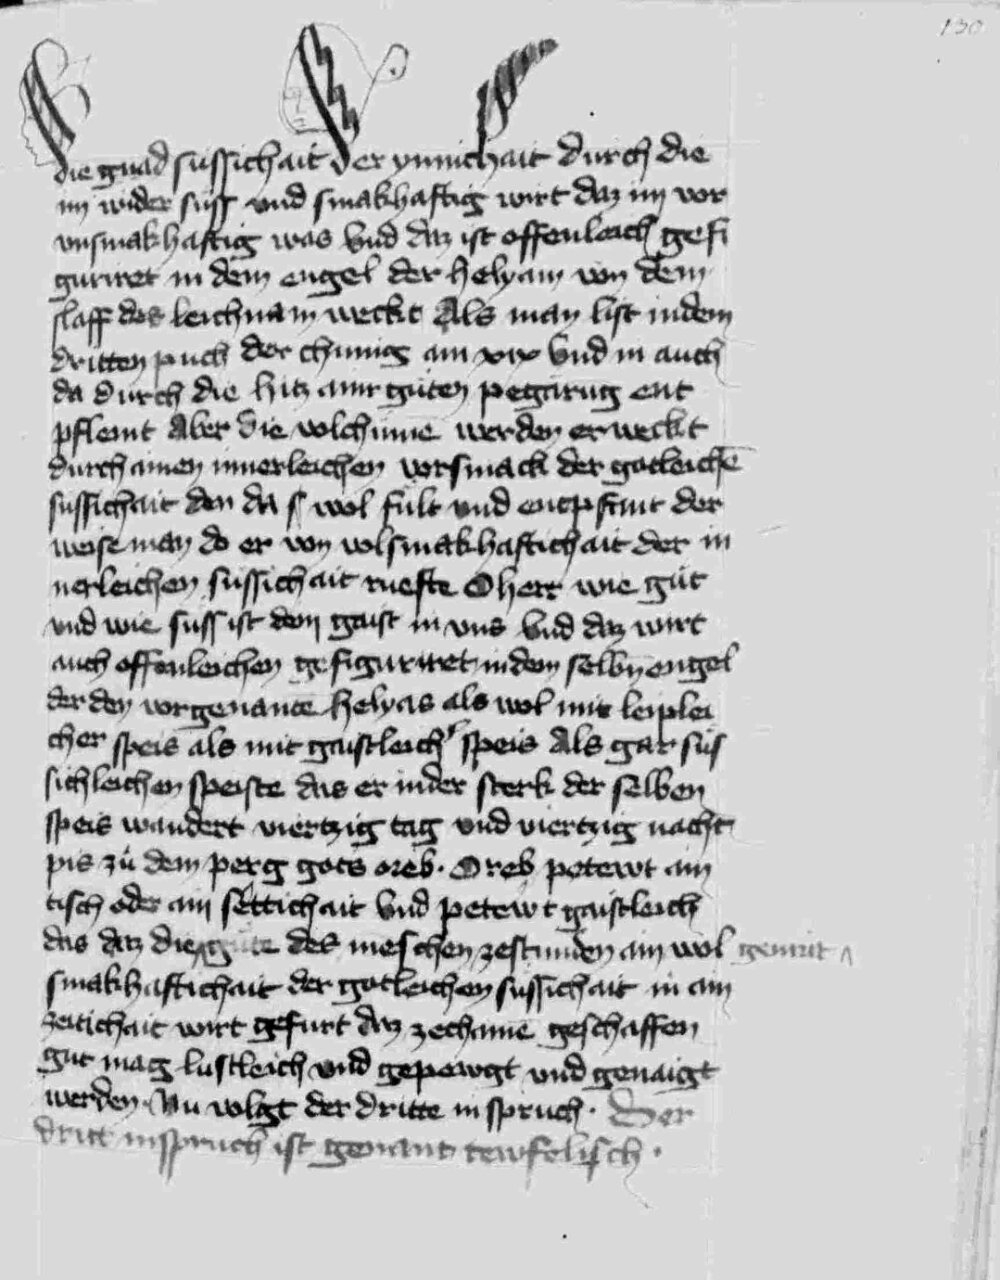 130
die gnad sussichait der ynnichait durch die
im wider süss vnd smakhaftig wirt daz im vor
vnsmakhaftig was Vnd daz ist offenleich gefi
guriret in dem engel der helyam von dem
slaff des leichnam weckt Als man list in dem
dritten puch der chunig am xix Vnd in auch
da durch die hitz ainr guten pegirug ent
pflemt Aber die volchume werden erweckt
durch ainen innerleichen vorsmack der gotleichē
sussichait den da s wol fult vnd entpfant der
weise man do er von wolsmakhaftichait der in
nerleichen sussichait rüefte O herr wie güt
vnd wie suss ist dein gaist in vns Vnd daz wirt
auch offenleichen gefiguriret in dem selbn engel
der den vorgenante helyas als wol mit leiplei
cher speis als mit gaistleichr speis Als gar sus
sichleichen speiste das er in der sterk der selben
speis wandert viertzig tag vnd viertzig nacht
pis zu dem perg gots oreb. Oreb petewt ain
tisch oder ain settichait Vnd petewt gaistleich
das daz die des meschen zestunden ain wol gemüt
smakhaftichait der gotleichen sussichait in ain
zeitichait wirt gefurt daz zechaine geschaffen
gut mag lustleich vnd gepewgt vnd genaigt
werden. Nu volgt der dritte inspruch. Der
dritt inspruch ist genant tewfelisch.